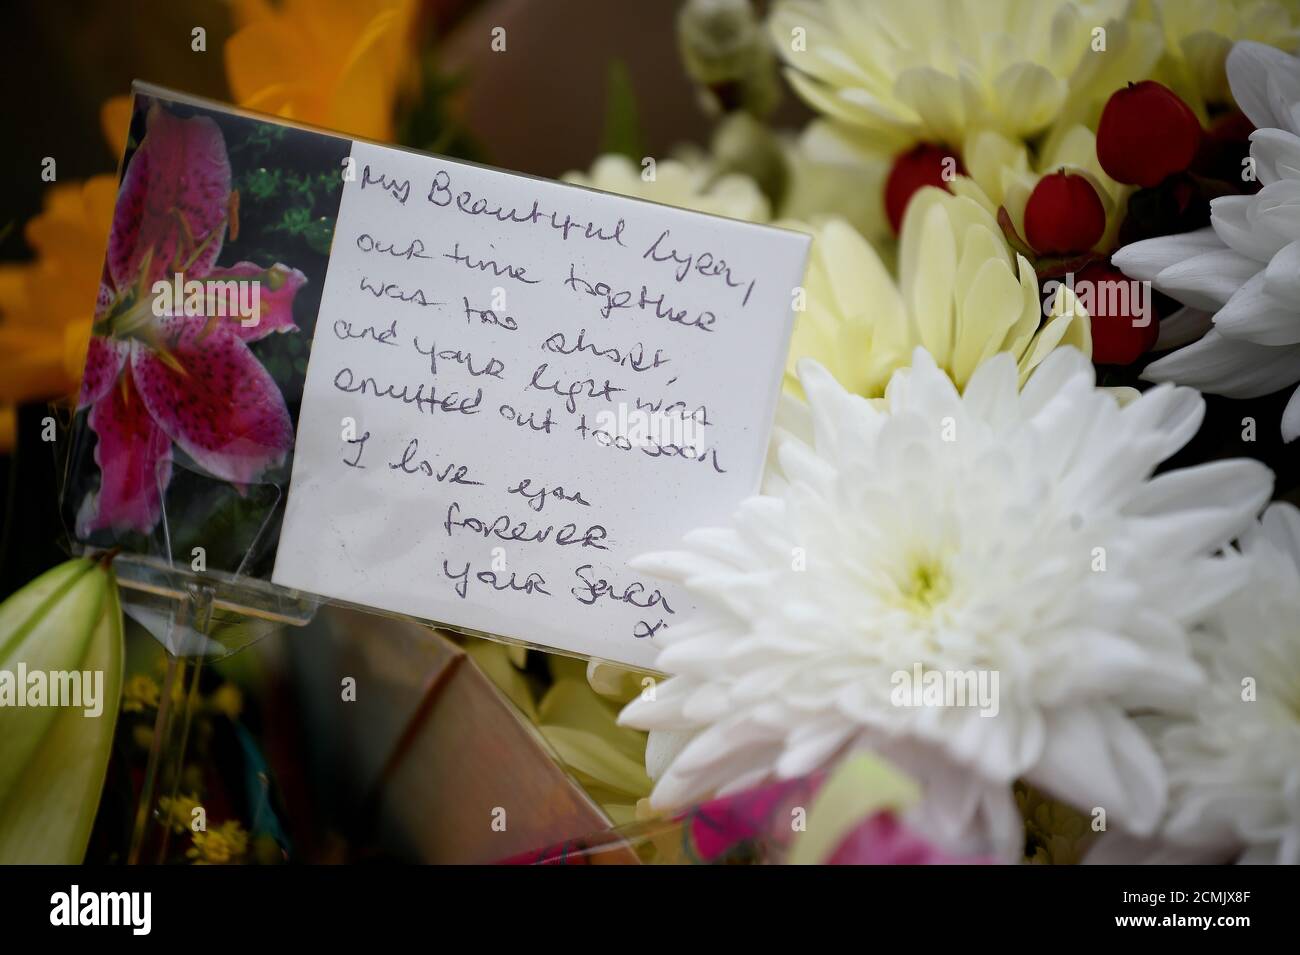 My Beautiful Lyra,
our time together
was too short,
and your light was
snutted out too soon
I love you
forever
your Sara
x
a
alamy
Image ID: 2CMJX8F
www.alamy.com